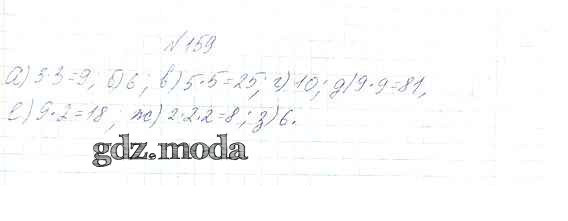 №159
а) 3·3=9; б) 6; в) 5·5=25; г) 10; д) 9·9=81,
е) 9·2=18; ж) 2·2·2=8; з) 6.
gdz.moda